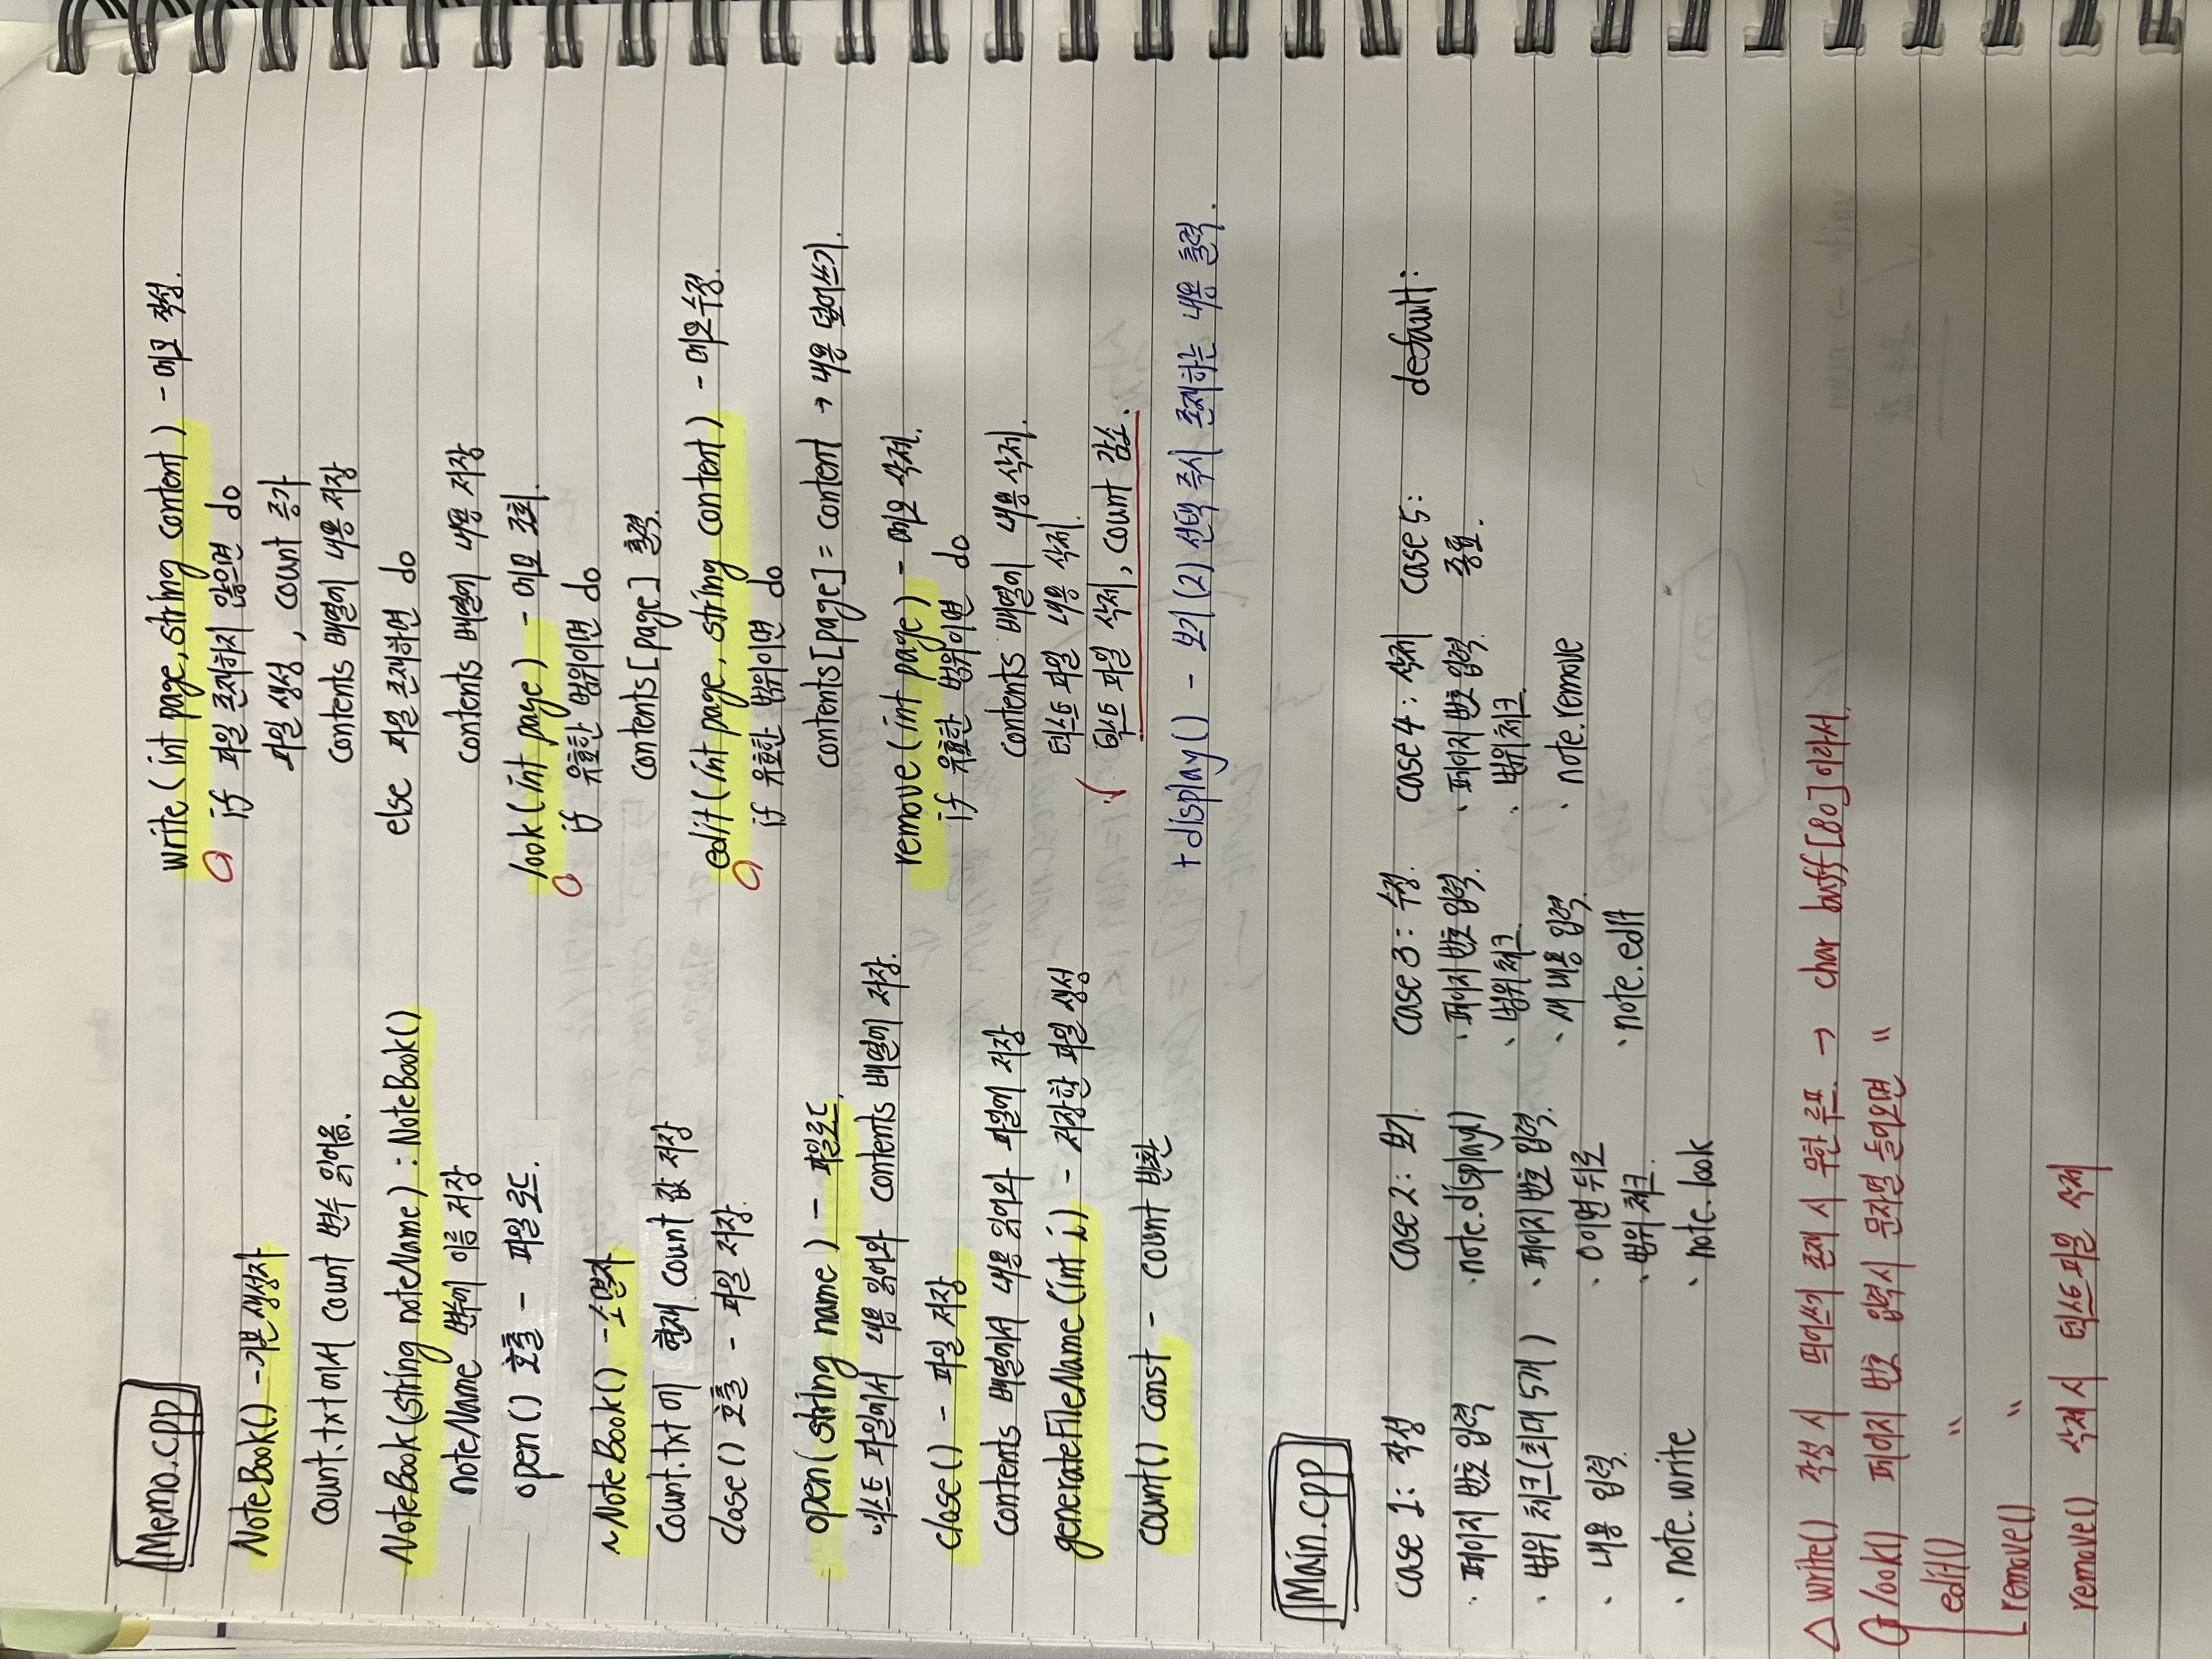 Memo.cpp
NoteBook() - 기본 생성자
count.txt에서 count 변수 읽어옴.
NoteBook(string noteName) : NoteBook()
noteName 변수에 이름 저장
open() 호출 - 파일 로드.
~NoteBook() - 소멸자
count.txt에 현재 count 값 저장
close() 호출 - 파일 저장
open(string name) - 파일로드.
텍스트 파일에서 내용 읽어와 contents 배열에 저장.
close() - 파일 저장
contents 배열에서 내용 읽어와 파일에 저장
generateFileName(int i) - 저장할 파일 생성
count() const - count 반환
write(int page, string content) - 메모 작성.
if 파일 존재하지 않으면 do
파일 생성, count 증가
contents 배열에 내용 저장
else 파일 존재하면 do
contents 배열에 내용 저장
look(int page) - 메모 조회.
if 유효한 범위이면 do
contents[page] 출력.
edit(int page, string content) - 메모수정.
if 유효한 범위이면 do
contents[page] = content → 내용 덮어쓰기.
remove(int page) - 메모 삭제.
if 유효한 범위이면 do
contents 배열에 내용 삭제.
텍스트 파일 내용 삭제.
✓ 텍스트 파일 삭제, count 감소.
+display() - 보기(2) 선택 즉시 존재하는 내용 출력.
Main.cpp
case 1: 작성
· 페이지 번호 입력
· 범위 체크(최대 5개)
· 내용 입력.
· note.write
case 2: 보기.
· note.display()
· 페이지 번호 입력.
· 0이면 뒤로
· 범위 체크.
· note.look
case 3: 수정.
· 페이지 번호 입력.
· 범위 체크.
· 새 내용 입력.
· note.edit
case 4: 삭제
· 페이지 번호 입력.
· 범위 체크.
· note.remove
case 5:
종료.
default:
△ write() 작성 시 띄어쓰기 존재 시 무한 루프. → char buff[80]이라서.
look() 페이지 번호 입력시 문자열 들어오면 "
edit() "
remove() "
remove() 삭제 시 텍스트파일 삭제